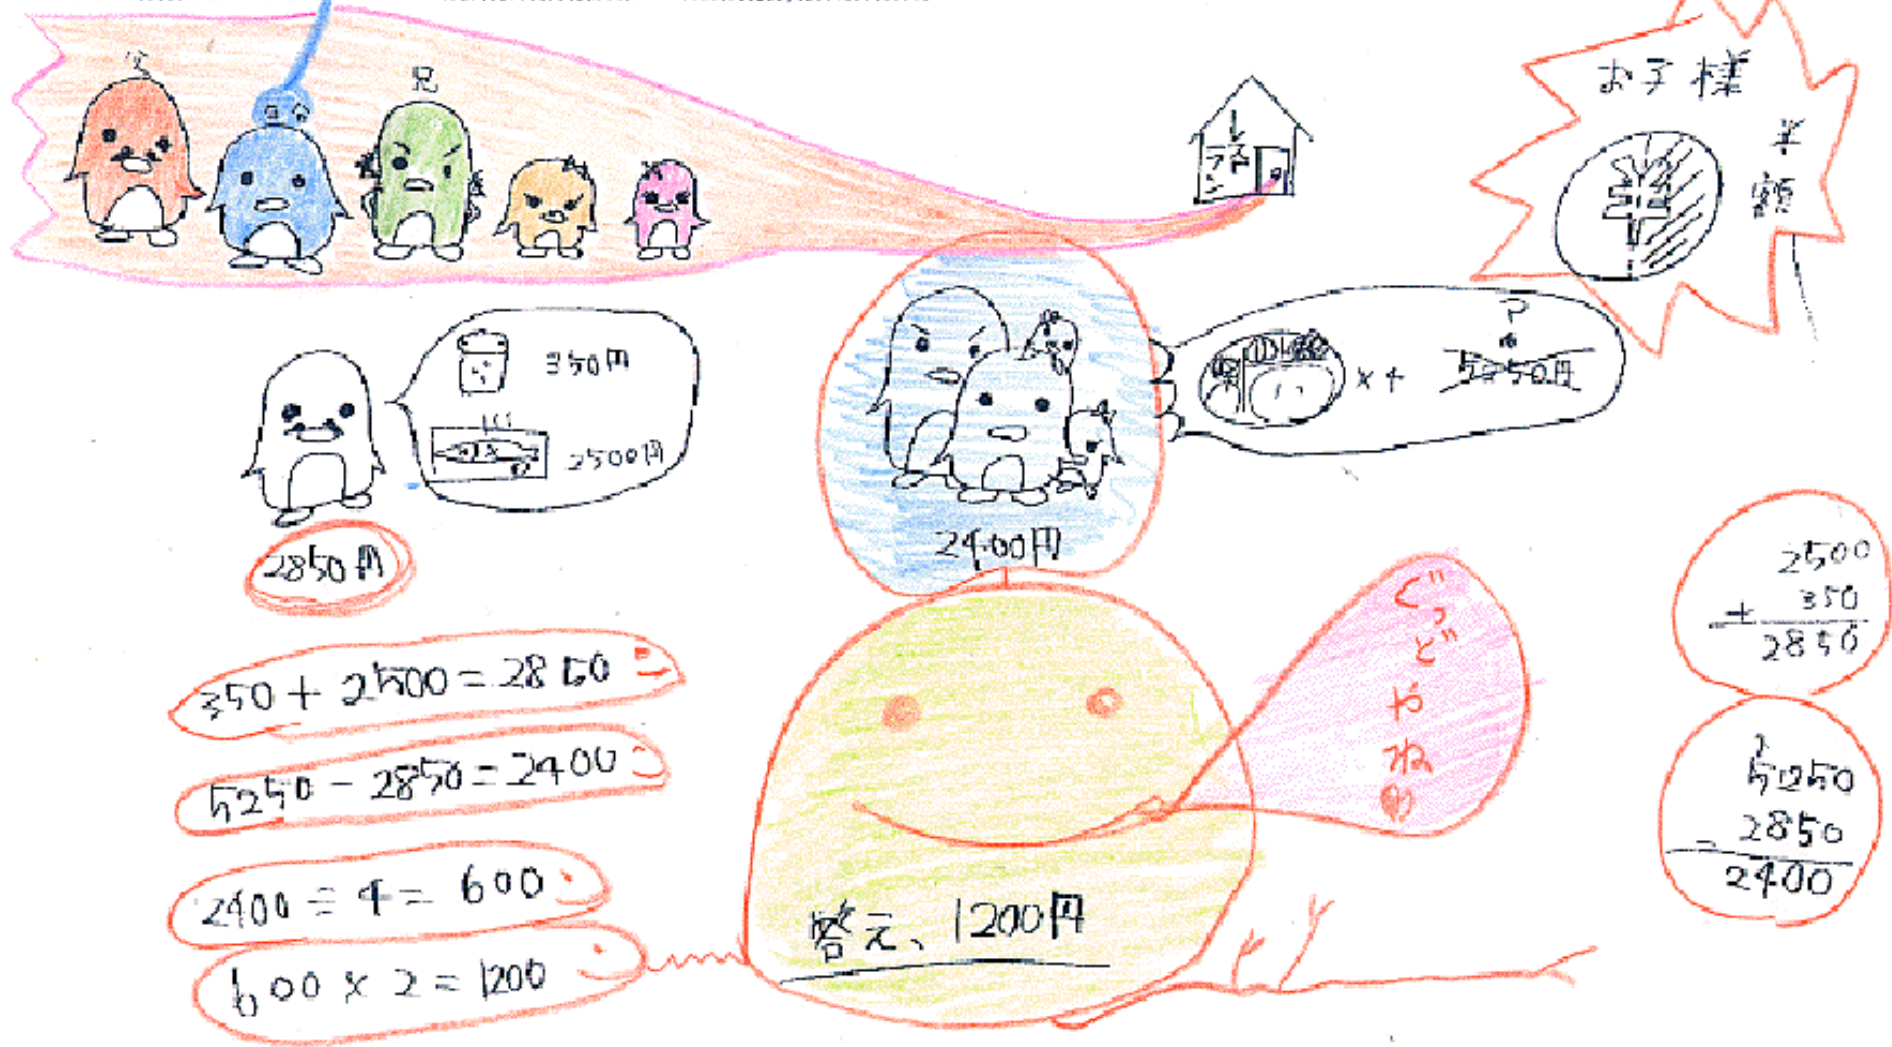 父
兄
お子様
半額
半
350円
2500円
×4
5250円
?
2850円
2400円
350+2500=2850
5250-2850=2400
2400÷4=600
600×2=1200
ぐっどやね
答え、1200円
2500
+ 350
2850
5250
- 2850
2400